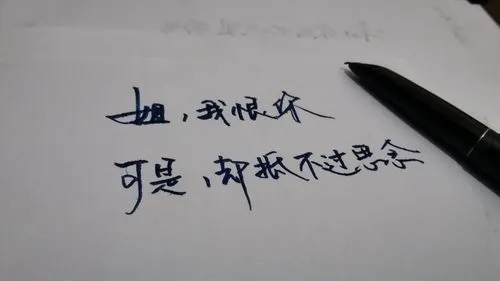 姐，我恨你
可是，却抵不过思念